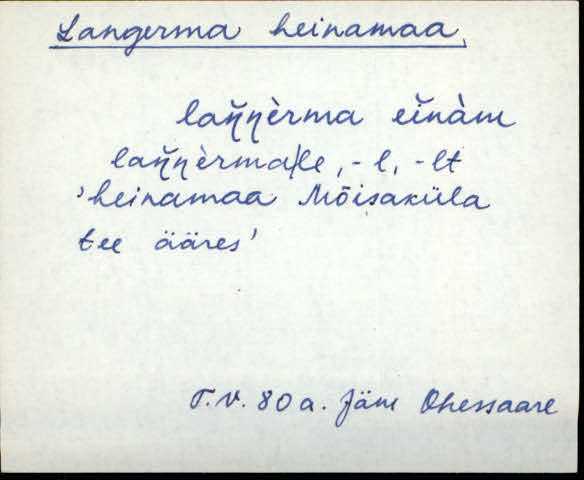 Langerma heinamaa,
laŋ̆ŋèrma eĭnàm
laŋ̆ŋèrma|le, -l, -lt
'heinamaa Mõisaküla
tee ääres'
T.V. 80 a. Jäm Ohessaare